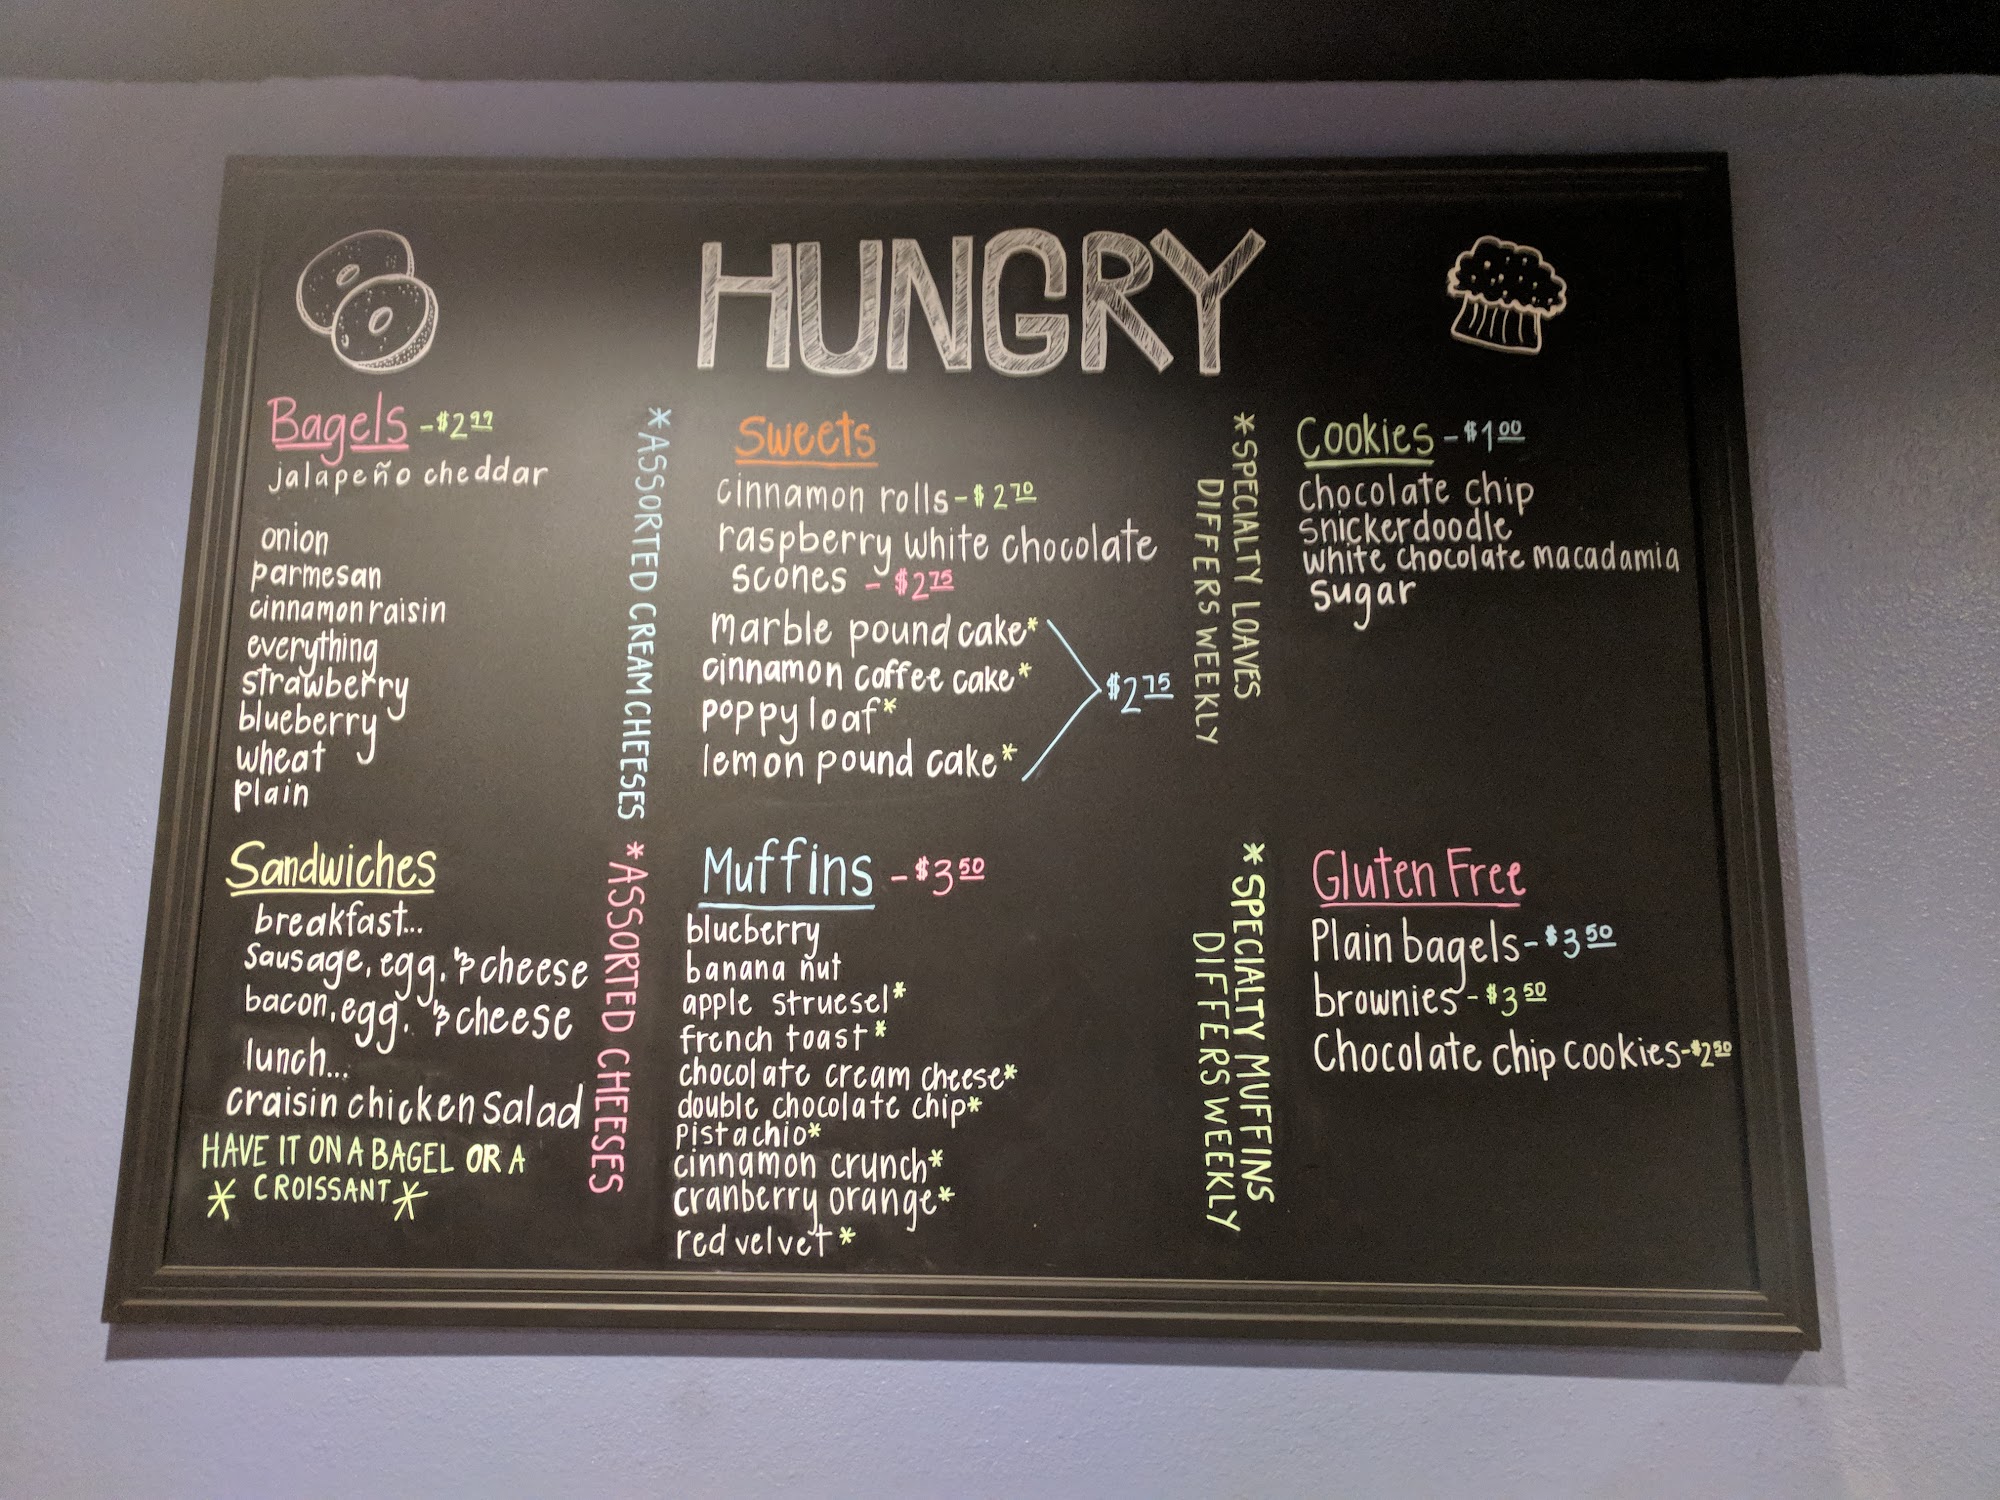 HUNGRY
Bagels - $2.99
jalapeño cheddar
onion
parmesan
cinnamon raisin
everything
strawberry
blueberry
wheat
plain
*ASSORTED CREAM CHEESES
Sandwiches
breakfast...
Sausage, egg, & cheese
bacon, egg, & cheese
lunch...
craisin chicken salad
HAVE IT ON A BAGEL OR A
* CROISSANT *
*ASSORTED CHEESES
Sweets
cinnamon rolls - $2.70
raspberry white chocolate
scones - $2.75
marble pound cake*
cinnamon coffee cake*
poppy loaf*
lemon pound cake*
$2.75
*SPECIALTY LOAVES
DIFFERS WEEKLY
Muffins - $3.50
blueberry
banana nut
apple struesel*
french toast*
chocolate cream cheese*
double chocolate chip*
pistachio*
cinnamon crunch*
cranberry orange*
red velvet*
*SPECIALTY MUFFINS
DIFFERS WEEKLY
Cookies - $1.00
Chocolate chip
snickerdoodle
white chocolate macadamia
sugar
Gluten Free
Plain bagels - $3.50
brownies - $3.50
Chocolate chip cookies - $2.50